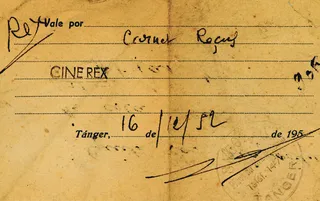 Rex Vale por
Carnet Reçus
CINE REX
Tánger, 16 de /12/ 52 de 195
TANGER